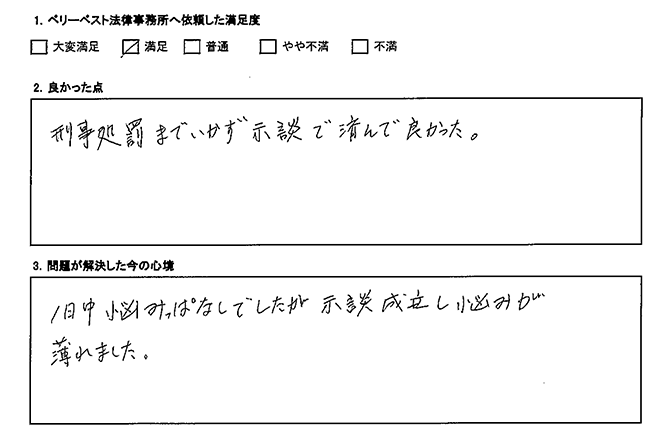 1. ベリーベスト法律事務所へ依頼した満足度
□ 大変満足 ☑ 満足 □ 普通 □ やや不満 □ 不満
2. 良かった点
刑事処罰までいかず示談で済んで良かった。
3. 問題が解決した今の心境
1日中悩みっぱなしでしたが示談成立し悩みが
薄れました。